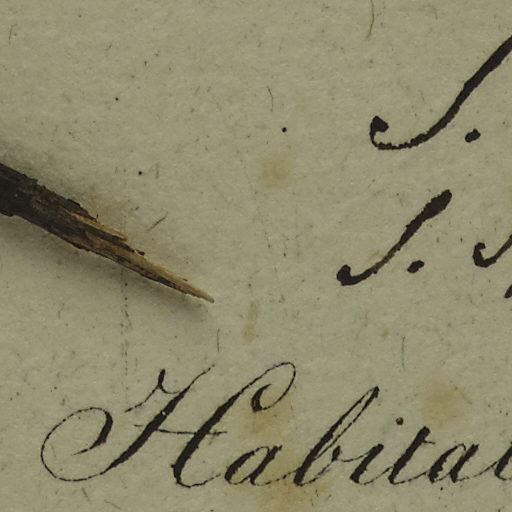 S.
S.
Habitat